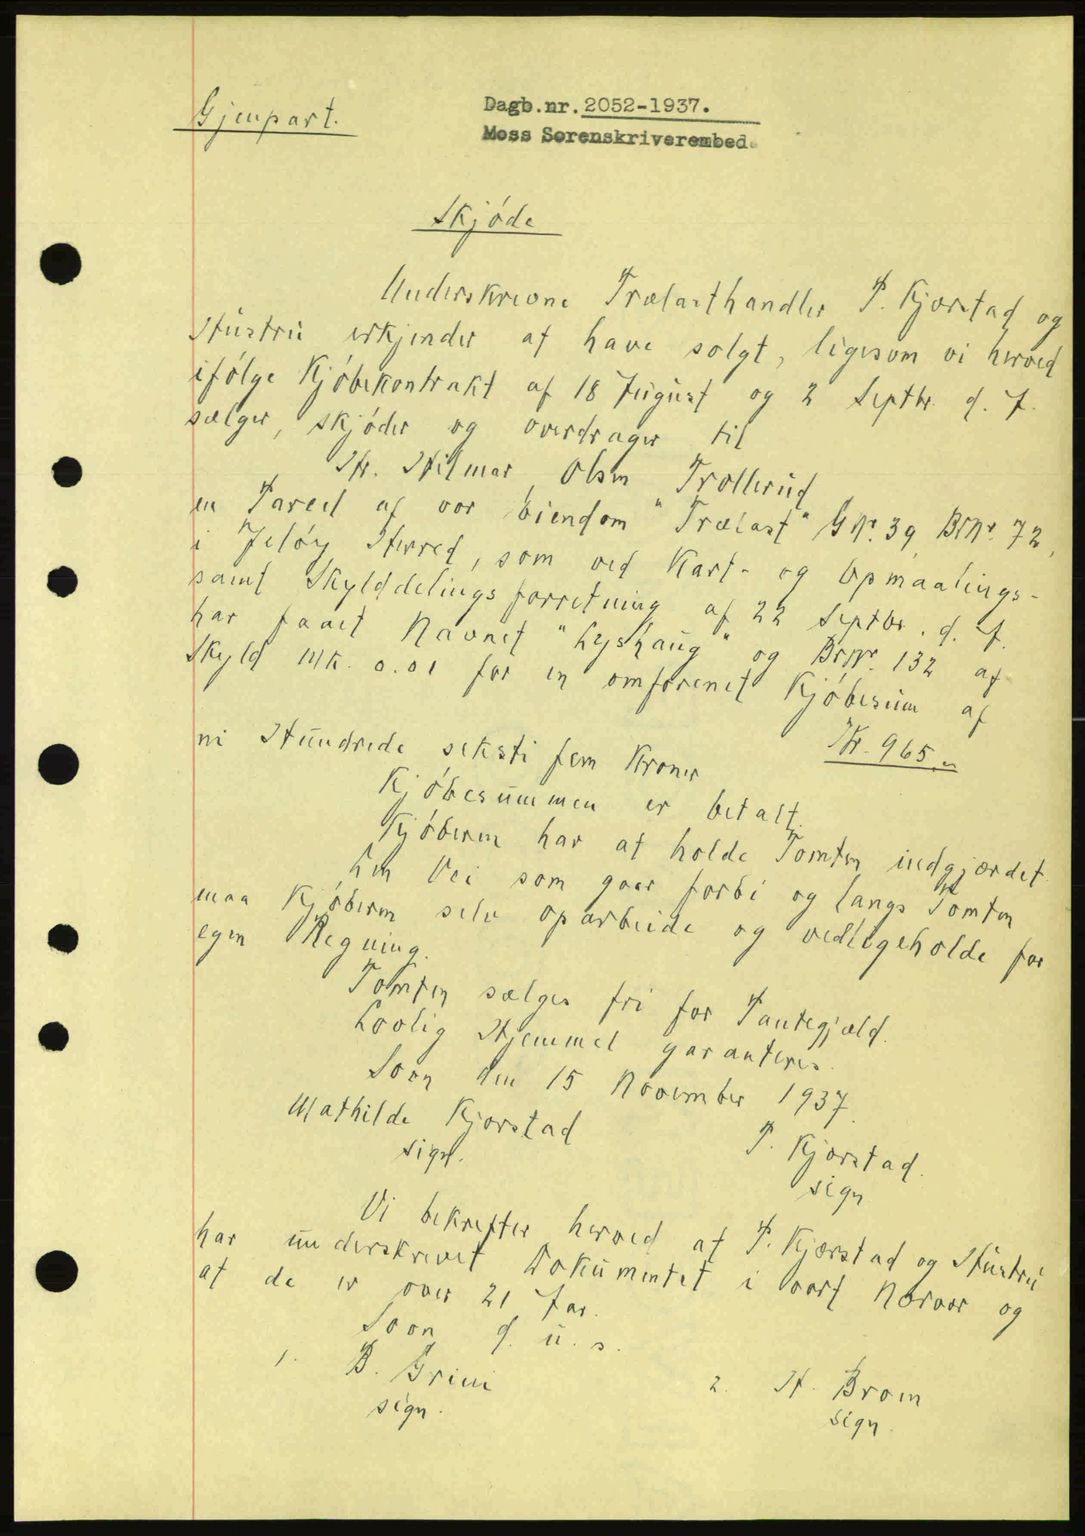 Gjenpart.
Dagb.nr. 2052-1937.
Moss Sorenskriverembed.
Skjøde
Underskrevne Trælasthandler P. Kjærstad og
Hustru erkjender at have solgt, ligesom vi herved
ifølge Kjøbekontrakt af 18 August og 2 Septbr. d. A.
sælger, skjøder og overdrager til
Hr. Hilmar Olsen Trollerud
en Parcel af vor Eiendom "Trælast" GNr. 39 BrNr. 72,
i Jeløy Herred, som ved Kart- og Opmaalings-
samt Skylddelingsforretning af 22 Septbr. d. A.
har faaet Navnet "Lyshaug" og BrNr. 132 af
Skyld Mk. 0.01 for en omforenet Kjøbesum af
Kr. 965.-
ni Hundrede seksti fem Kroner
Kjøbesummen er betalt.
Kjøberen har at holde Tomten indgjærdet.
Den Vei som gaar forbi og langs Tomten
maa Kjøberen selv oparbeide og vedligeholde for
egen Regning.
Tomten sælges fri for Pantegjæld.
Lovlig Hjemmel garanteres.
Soon den 15 November 1937.
Mathilde Kjærstad
sign.
P. Kjærstad.
sign
Vi bekrefter herved at P. Kjærstad og Hustru
har underskrevet Dokumentet i vort Nærvær og
at de er over 21 Aar.
Soon d. u. s.
1. B. Grini
sign.
2. H. Brom
sign.